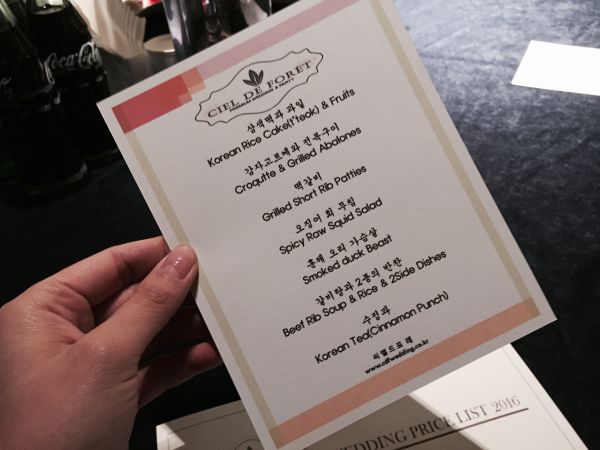 CIEL DE FORET
PREMIUM WEDDING & PARTY
삼색떡과 과일
Korean Rice Cake(t'teok) & Fruits
감자고로케와 전복구이
Croqutte & Grilled Abalones
떡갈비
Grilled Short Rib Patties
오징어 회 무침
Spicy Raw Squid Salad
훈제 오리 가슴살
Smoked duck Beast
갈비탕과 2종의 반찬
Beef Rib Soup & Rice & 2Side Dishes
수정과
Korean Tea(Cinnamon Punch)
씨엘드포레
www.cdfwedding.co.kr
WEDDING PRICE LIST 2016
Coca-Cola